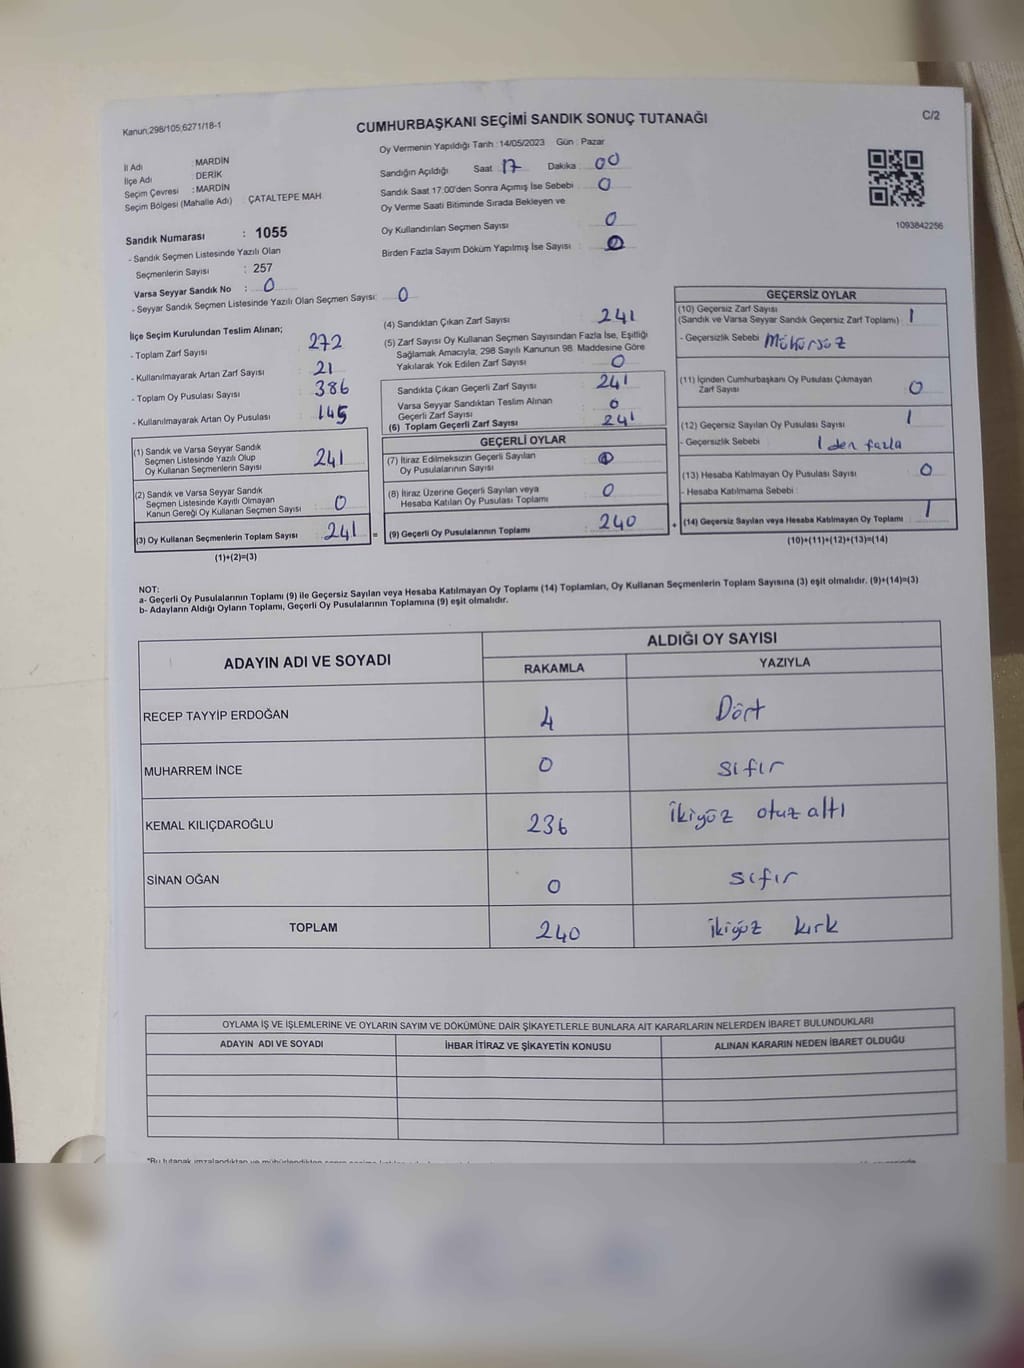 Kanun;298/105;6271/18-1
CUMHURBAŞKANI SEÇİMİ SANDIK SONUÇ TUTANAĞI
C/2
Oy Vermenin Yapıldığı Tarih : 14/05/2023 Gün : Pazar
İl Adı : MARDİN
İlçe Adı : DERİK
Seçim Çevresi : MARDİN
Seçim Bölgesi (Mahalle Adı) : ÇATALTEPE MAH
Sandığın Açıldığı Saat 17 Dakika : 00
Sandık Saat 17:00'den Sonra Açımış İse Sebebi : 0
Oy Verme Saati Bitiminde Sırada Bekleyen ve
Oy Kullandırılan Seçmen Sayısı : 0
Birden Fazla Sayım Döküm Yapılmış İse Sayısı : 0
1093842256
Sandık Numarası : 1055
- Sandık Seçmen Listesinde Yazılı Olan
Seçmenlerin Sayısı : 257
Varsa Seyyar Sandık No : 0
- Seyyar Sandık Seçmen Listesinde Yazılı Olan Seçmen Sayısı: 0
İlçe Seçim Kurulundan Teslim Alınan;
- Toplam Zarf Sayısı : 272
- Kullanılmayarak Artan Zarf Sayısı : 21
- Toplam Oy Pusulası Sayısı : 386
- Kullanılmayarak Artan Oy Pusulası : 145
(1) Sandık ve Varsa Seyyar Sandık
Seçmen Listesinde Yazılı Olup
Oy Kullanan Seçmenlerin Sayısı : 241
(2) Sandık ve Varsa Seyyar Sandık
Seçmen Listesinde Kayıtlı Olmayan
Kanun Gereği Oy Kullanan Seçmen Sayısı : 0
(3) Oy Kullanan Seçmenlerin Toplam Sayısı : 241 =
(1)+(2)=(3)
(4) Sandıktan Çıkan Zarf Sayısı : 241
(5) Zarf Sayısı Oy Kullanan Seçmen Sayısından Fazla İse, Eşitliği
Sağlamak Amacıyla; 298 Sayılı Kanunun 98. Maddesine Göre
Yakılarak Yok Edilen Zarf Sayısı : 0
Sandıkta Çıkan Geçerli Zarf Sayısı : 241
Varsa Seyyar Sandıktan Teslim Alınan
Geçerli Zarf Sayısı : 0
(6) Toplam Geçerli Zarf Sayısı : 241
GEÇERLİ OYLAR
(7) İtiraz Edilmeksizin Geçerli Sayılan
Oy Pusulalarının Sayısı :
(8) İtiraz Üzerine Geçerli Sayılan veya
Hesaba Katılan Oy Pusulası Toplamı : 0
(9) Geçerli Oy Pusulalarının Toplamı : 240 +
GEÇERSİZ OYLAR
(10) Geçersiz Zarf Sayısı
(Sandık ve Varsa Seyyar Sandık Geçersiz Zarf Toplamı) : 1
- Geçersizlik Sebebi : Mühürsüz
(11) İçinden Cumhurbaşkanı Oy Pusulası Çıkmayan
Zarf Sayısı : 0
(12) Geçersiz Sayılan Oy Pusulası Sayısı : 1
- Geçersizlik Sebebi : 1 den fazla
(13) Hesaba Katılmayan Oy Pusulası Sayısı : 0
- Hesaba Katılmama Sebebi :
(14) Geçersiz Sayılan veya Hesaba Katılmayan Oy Toplamı : 1
(10)+(11)+(12)+(13)=(14)
NOT:
a- Geçerli Oy Pusulalarının Toplamı (9) ile Geçersiz Sayılan veya Hesaba Katılmayan Oy Toplamı (14) Toplamları, Oy Kullanan Seçmenlerin Toplam Sayısına (3) eşit olmalıdır. (9)+(14)=(3)
b- Adayların Aldığı Oyların Toplamı, Geçerli Oy Pusulalarının Toplamına (9) eşit olmalıdır.
ADAYIN ADI VE SOYADI ALDIĞI OY SAYISI
RAKAMLA YAZIYLA
RECEP TAYYİP ERDOĞAN 4 Dört
MUHARREM İNCE 0 sıfır
KEMAL KILIÇDAROĞLU 236 ikiyüz otuz altı
SİNAN OĞAN 0 sıfır
TOPLAM 240 ikiyüz kırk
OYLAMA İŞ VE İŞLEMLERİNE VE OYLARIN SAYIM VE DÖKÜMÜNE DAİR ŞİKAYETLERLE BUNLARA AİT KARARLARIN NELERDEN İBARET BULUNDUKLARI
ADAYIN ADI VE SOYADI İHBAR İTİRAZ VE ŞİKAYETİN KONUSU ALINAN KARARIN NEDEN İBARET OLDUĞU
*Bu tutanak imzalandıktan ve mühürlendikten sonra